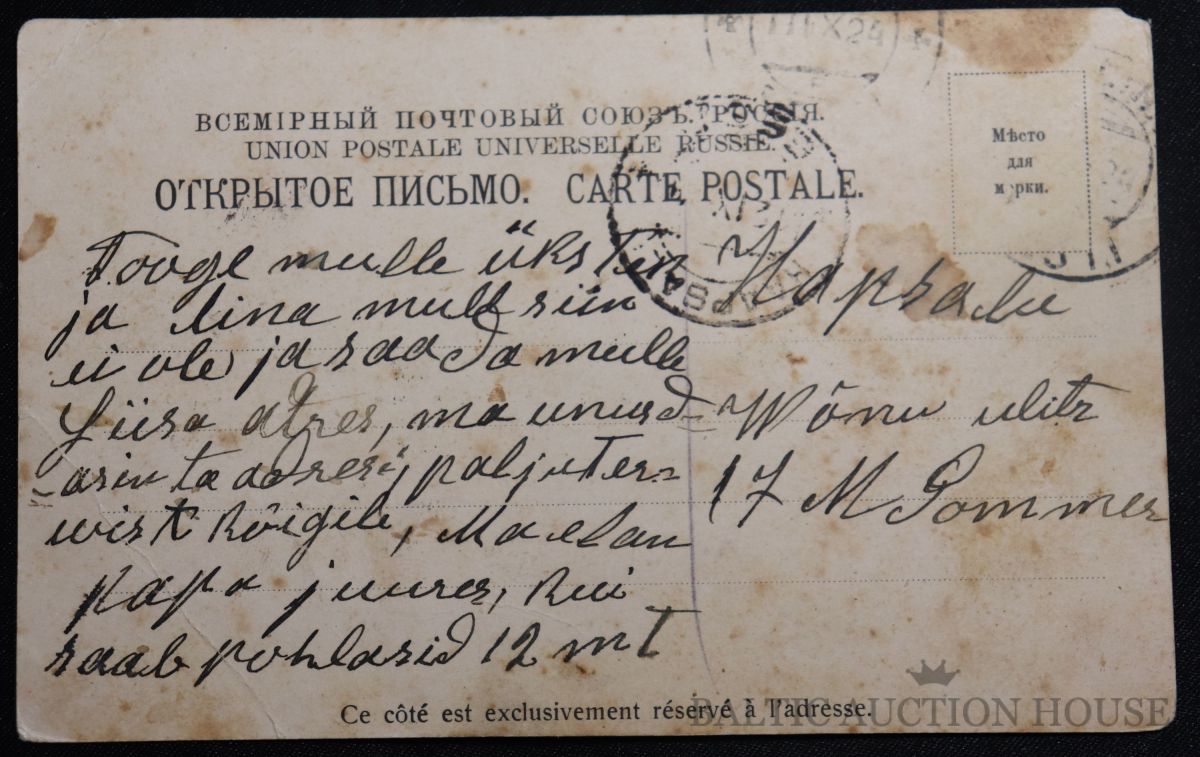 III X 24
ВСЕМІРНЫЙ ПОЧТОВЫЙ СОЮЗЪ. РОССІЯ.
UNION POSTALE UNIVERSELLE RUSSIE.
ОТКРЫТОЕ ПИСЬМО. CARTE POSTALE.
Мѣсто
для
марки.
HAPSAL
Tooge mulle üks tük
ja lina mull siin
ei ole ja saada mulle
Liisa atres, ma unusd-
asin ta adresij paljuter-
wist kõigile, Ma elan
Papa juures, kui
saab pohlasid 12 mt
Hapsalu
Wõnu ulits
17 M Pommer
Ce côté est exclusivement réservé à l'adresse.
BALTIC AUCTION HOUSE